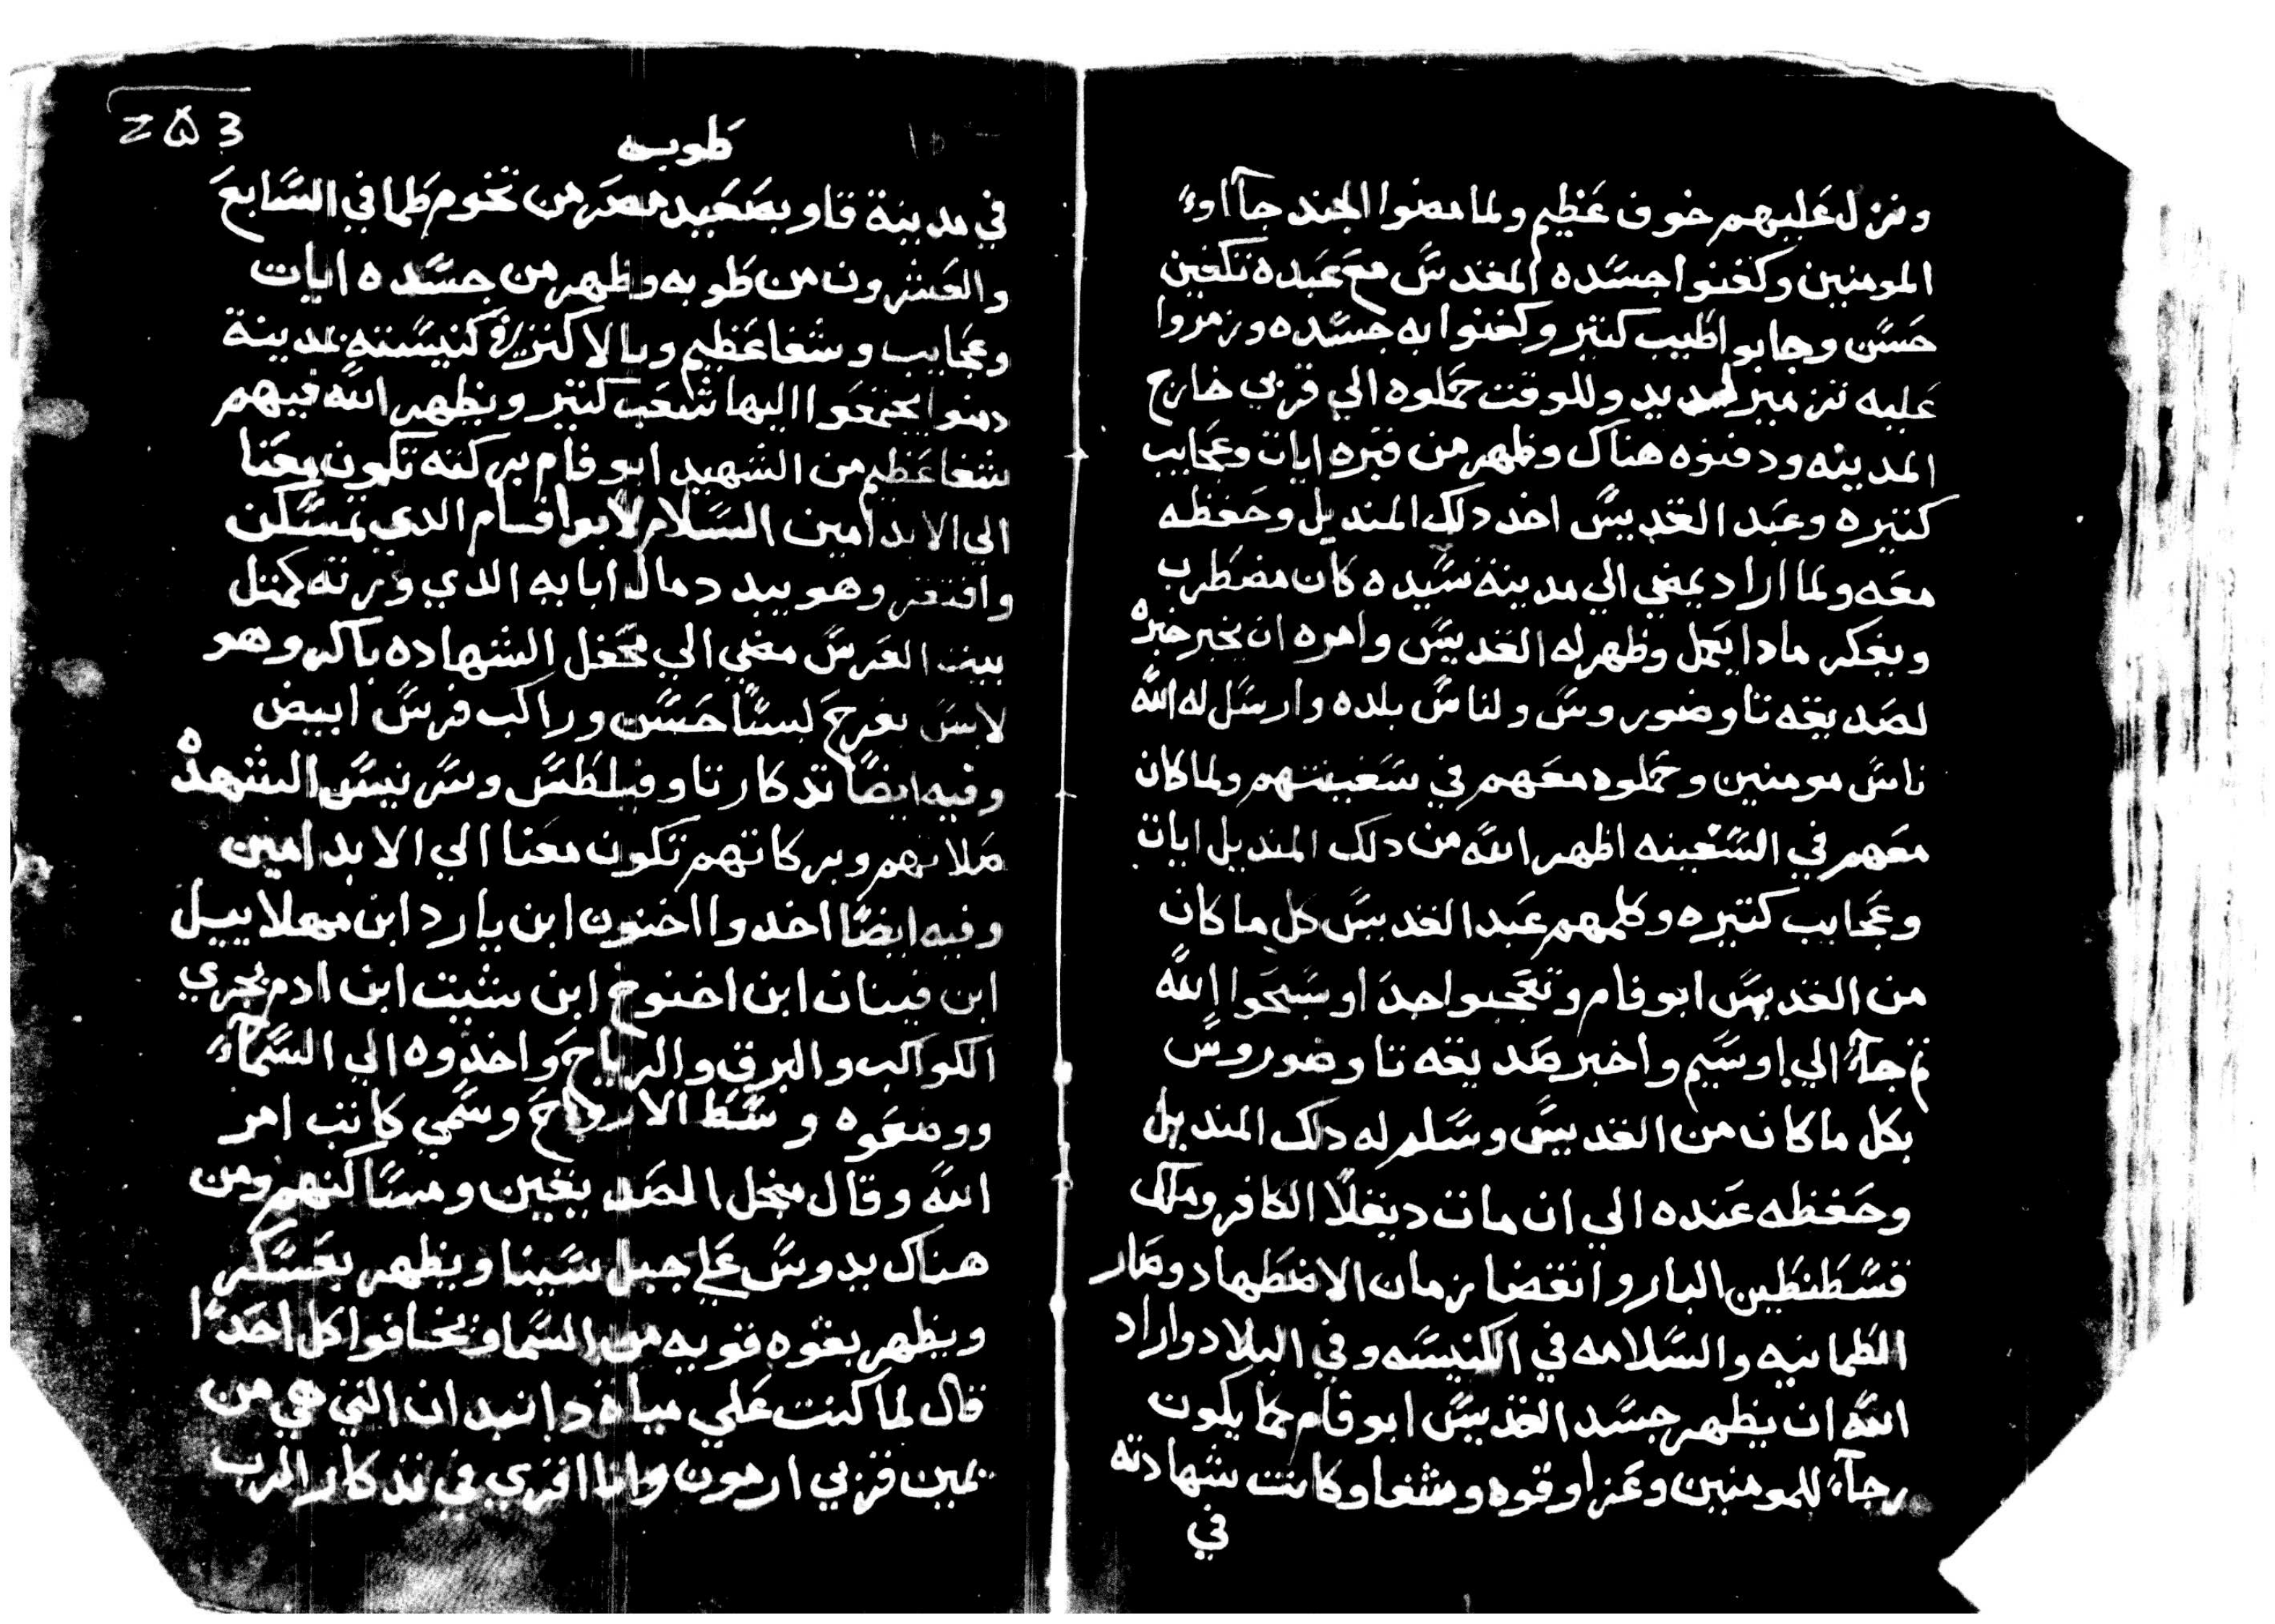 ونزل عليهم خوف عظيم ولما مضوا الجند جآاوء
المومنين وكفنوا جسده المقدس مع عبده تكفين
حسن وجابو اطيب كتير وكفنوا به جسده وزمزوا
عليه تزمير لحديد وللوقت حملوه الي قزبي خارج
المدينه ودفنوه هناك وظهر من قبره ايات وعجايب
كتيره وعبد القديس اخد دلك المنديل وحفظه
معه ولما اراد يمضي الي مدينة سيده كان مضطرب
ويفكر مادا يعمل وظهر له القديس وامره ان يخبر خبره
لصديقه تاوضوروس ولناس بلده وارسل له الله
ناس مومنين وحملوه معهم في سفينتهم ولما كان
معهم في السفينه اظهر الله من دلك المنديل ايات
وعجايب كتيره وكلمهم عبد القديس كل ما كان
من القديس ابو فام وتعجبوا جدا وسبحوا الله
تم جآء الي اوسيم واخبر صديقه تاوضوروس
بكل ما كان من القديس وسلم له دلك المنديل
وحفظه عنده الي ان مات ديقلا الكافر وملك
قسطنطين البار وانقضا زمان الاضطهاد وصار
الطمانيه والسلامه في الكنيسه وفي البلاد واراد
الله ان يظهر جسد القديس ابو فام كما يكون
رجآء للمومنين وعزا وقوه وشفا وكانت شهادته
في
طوبه
في مدينة قاو بصعيد مصر من تخوم طما في السابع
والعشرون من طوبه وظهر من جسده ايات
وعجايب وشفا عظيم وبالاكتر في كنيسته بمدينة
يجتمعوا اليها شعب كتير ويظهر الله فيهم
شفا عظيم من الشهيد ابو فام بركته تكون معنا
الي الابد امين السلام لابو افام الدي تمسكن
وافتقر وهو يبدد مال ابايه الدي ورته كمتل
بيت العرس مضي الي محفل الشهاده باكر وهو
لابس بفرح لبسا حسن وراكب فرس ابيض
وفيه ايضا تدكار تاوفيلطس الشهده
صلاتهم وبركاتهم تكون معنا الي الابد امين
وفيه ايضا اخدوا اخنون ابن يارد ابن مهلاييل
ابن قينان ابن اخنوخ ابن شيت ابن ادم بجري
الكواكب والبرق والرياح واخدوه الي السمآء
ووضعوه وسط الارواح وسمي كاتب امر
الله وقال منجل الصديقين ومساكنهم ومن
هناك يدوس علي جبل سينا ويظهر بعسكر
ويظهر بقوه قويه من السما ويخافوا كل احدا
قال لما كنت علي مياه دانيدان التي هي من
يمين قزبي ارمون وانا اقري في تدكار الرب